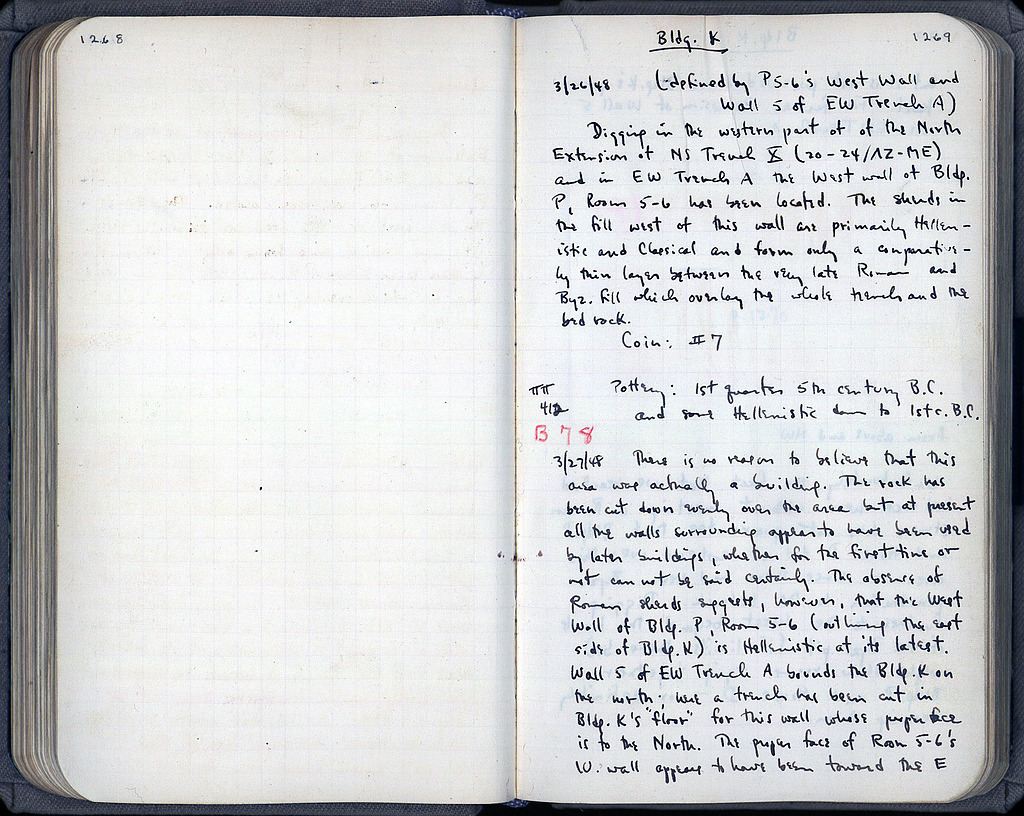 1268
Bldg. K
1269
3/26/48 (defined by P 5-6's West Wall and
Wall 5 of EW Trench A)
Digging in the western part of of the North
Extension of NS Trench X (20-24/ΛZ-ME)
and in EW Trench A the West wall of Bldg.
P, Room 5-6 has been located. The sherds in
the fill west of this wall are primarily Hellen-
istic and Classical and form only a comparative-
ly thin layer between the very late Roman and
Byz. fill which overlay the whole trench and the
bed rock.
Coin: #7
ππ
412
B 78
Pottery: 1st quarter 5th century B.C.
and some Hellenistic down to 1st c. B.C.
3/27/48 There is no reason to believe that this
area was actually a building. The rock has
been cut down evenly over the area but at present
all the walls surrounding appear to have been used
by later buildings, whether for the first time or
not can not be said certainly. The absence of
Roman sherds suggests, however, that the West
Wall of Bldg. P, Room 5-6 (outlining the east
side of Bldg. K) is Hellenistic at its latest.
Wall 5 of EW Trench A bounds the Bldg. K on
the north; here a trench has been cut in
Bldg. K's "floor" for this wall whose proper face
is to the North. The proper face of Room 5-6's
W. wall appears to have been toward the E